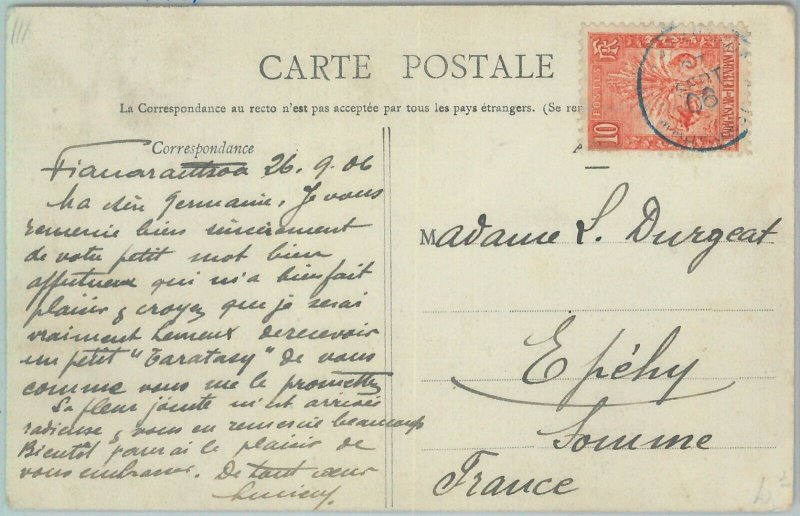 CARTE POSTALE
La Correspondance au recto n'est pas acceptée par tous les pays étrangers. (Se ren
Correspondance
Fianarantsoa 26.9.06
Ma chère Germaine, Je vous
remercie bien sincèrement
de votre petit mot bien
affectueux qui m'a bien fait
plaisir & croyez que je serai
vraiment heureux de recevoir
un petit "Taratasy" de vous
comme vous me le promettez
La fleur jointe m'est arrivée
radieuse & vous en remercie beaucoup
Bientôt j'aurai le plaisir de
vous embrasser. De tout cœur
Lucien
RF
10
POSTES
MADAGASCAR ET DÉPENDANCES
SEPT
06
A
Madame L. Durgeat
Epéhy
Somme
France